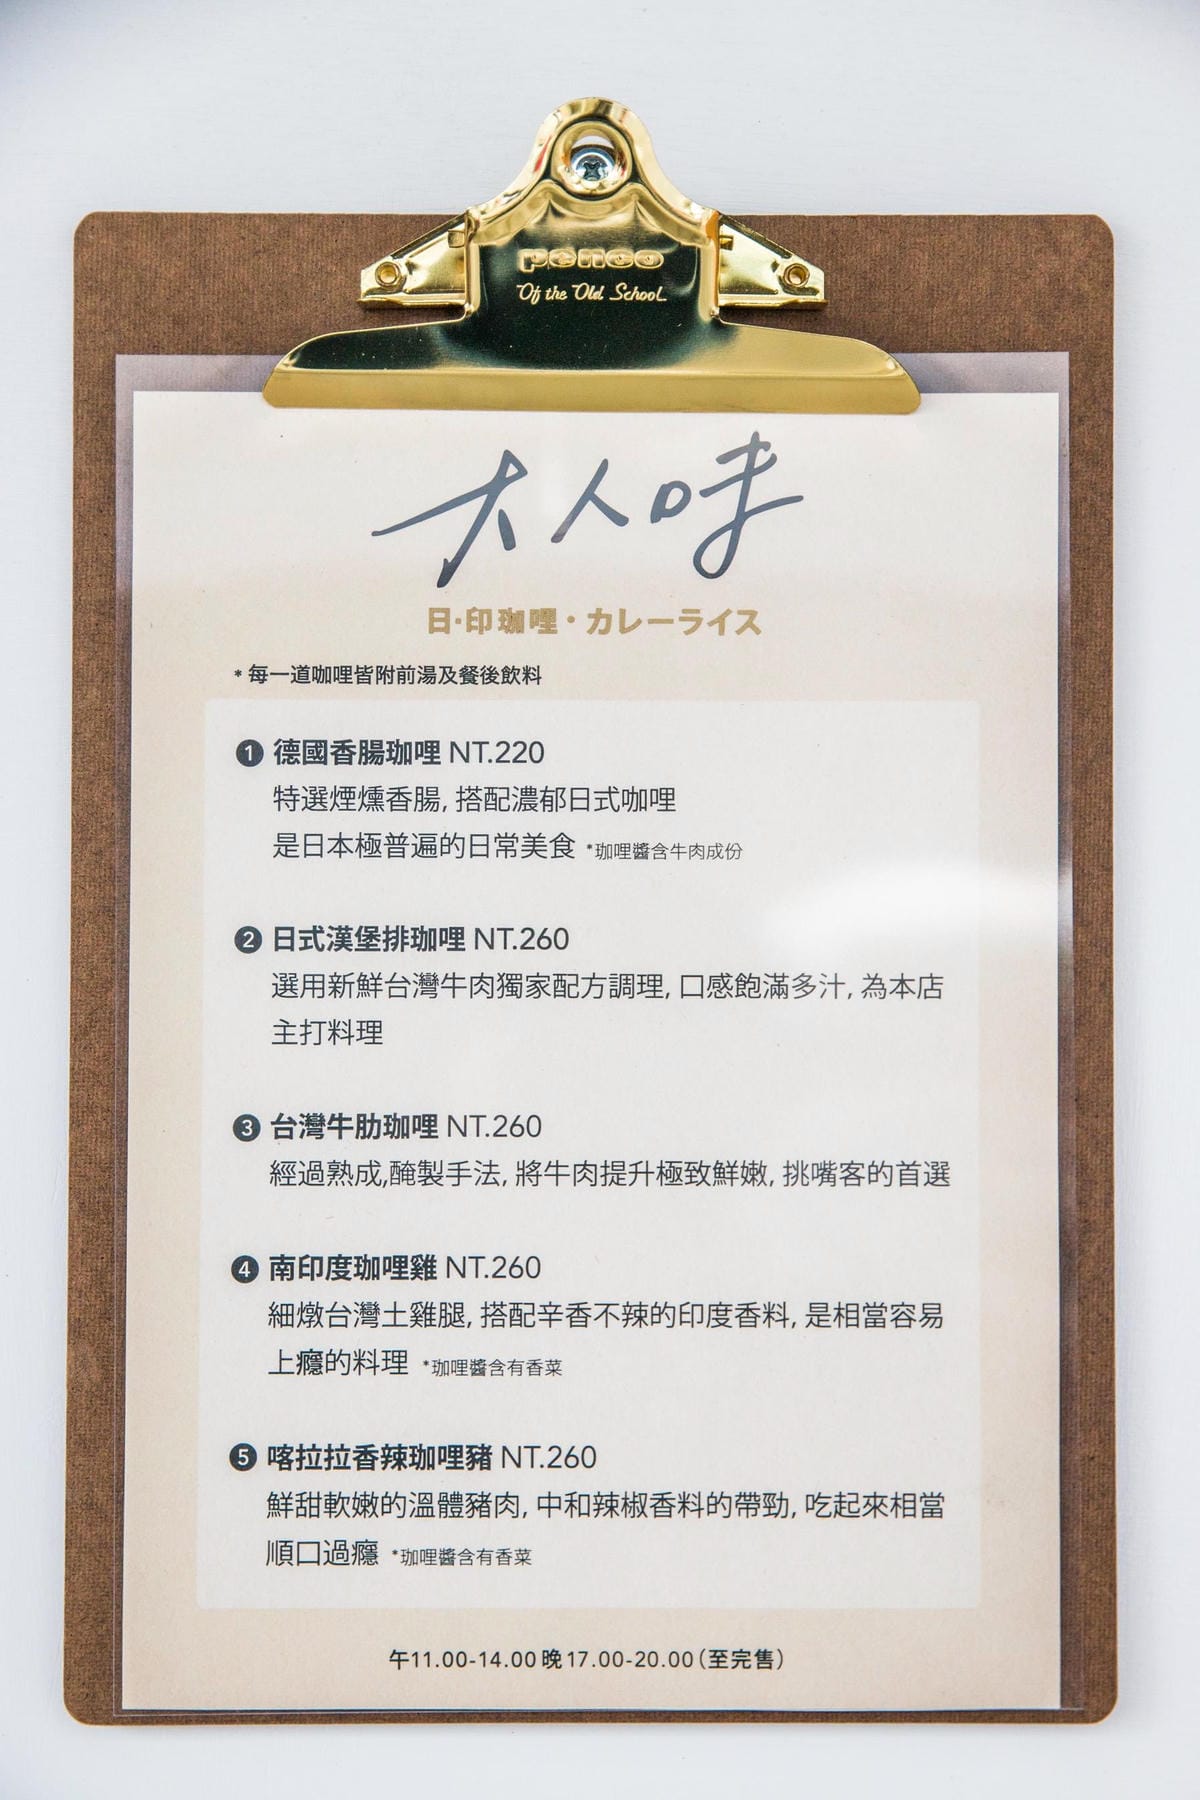 penco
Of the Old School
大人味
日·印珈哩・カレーライス
*每一道咖哩皆附前湯及餐後飲料
1 德國香腸珈哩 NT.220
特選煙燻香腸, 搭配濃郁日式咖哩
是日本極普遍的日常美食 *珈哩醬含牛肉成份
2 日式漢堡排珈哩 NT.260
選用新鮮台灣牛肉獨家配方調理, 口感飽滿多汁, 為本店
主打料理
3 台灣牛肋珈哩 NT.260
經過熟成,醃製手法, 將牛肉提升極致鮮嫩, 挑嘴客的首選
4 南印度珈哩雞 NT.260
細燉台灣土雞腿, 搭配辛香不辣的印度香料, 是相當容易
上癮的料理 *珈哩醬含有香菜
5 喀拉拉香辣珈哩豬 NT.260
鮮甜軟嫩的溫體豬肉, 中和辣椒香料的帶勁, 吃起來相當
順口過癮 *珈哩醬含有香菜
午11.00-14.00 晚17.00-20.00(至完售)